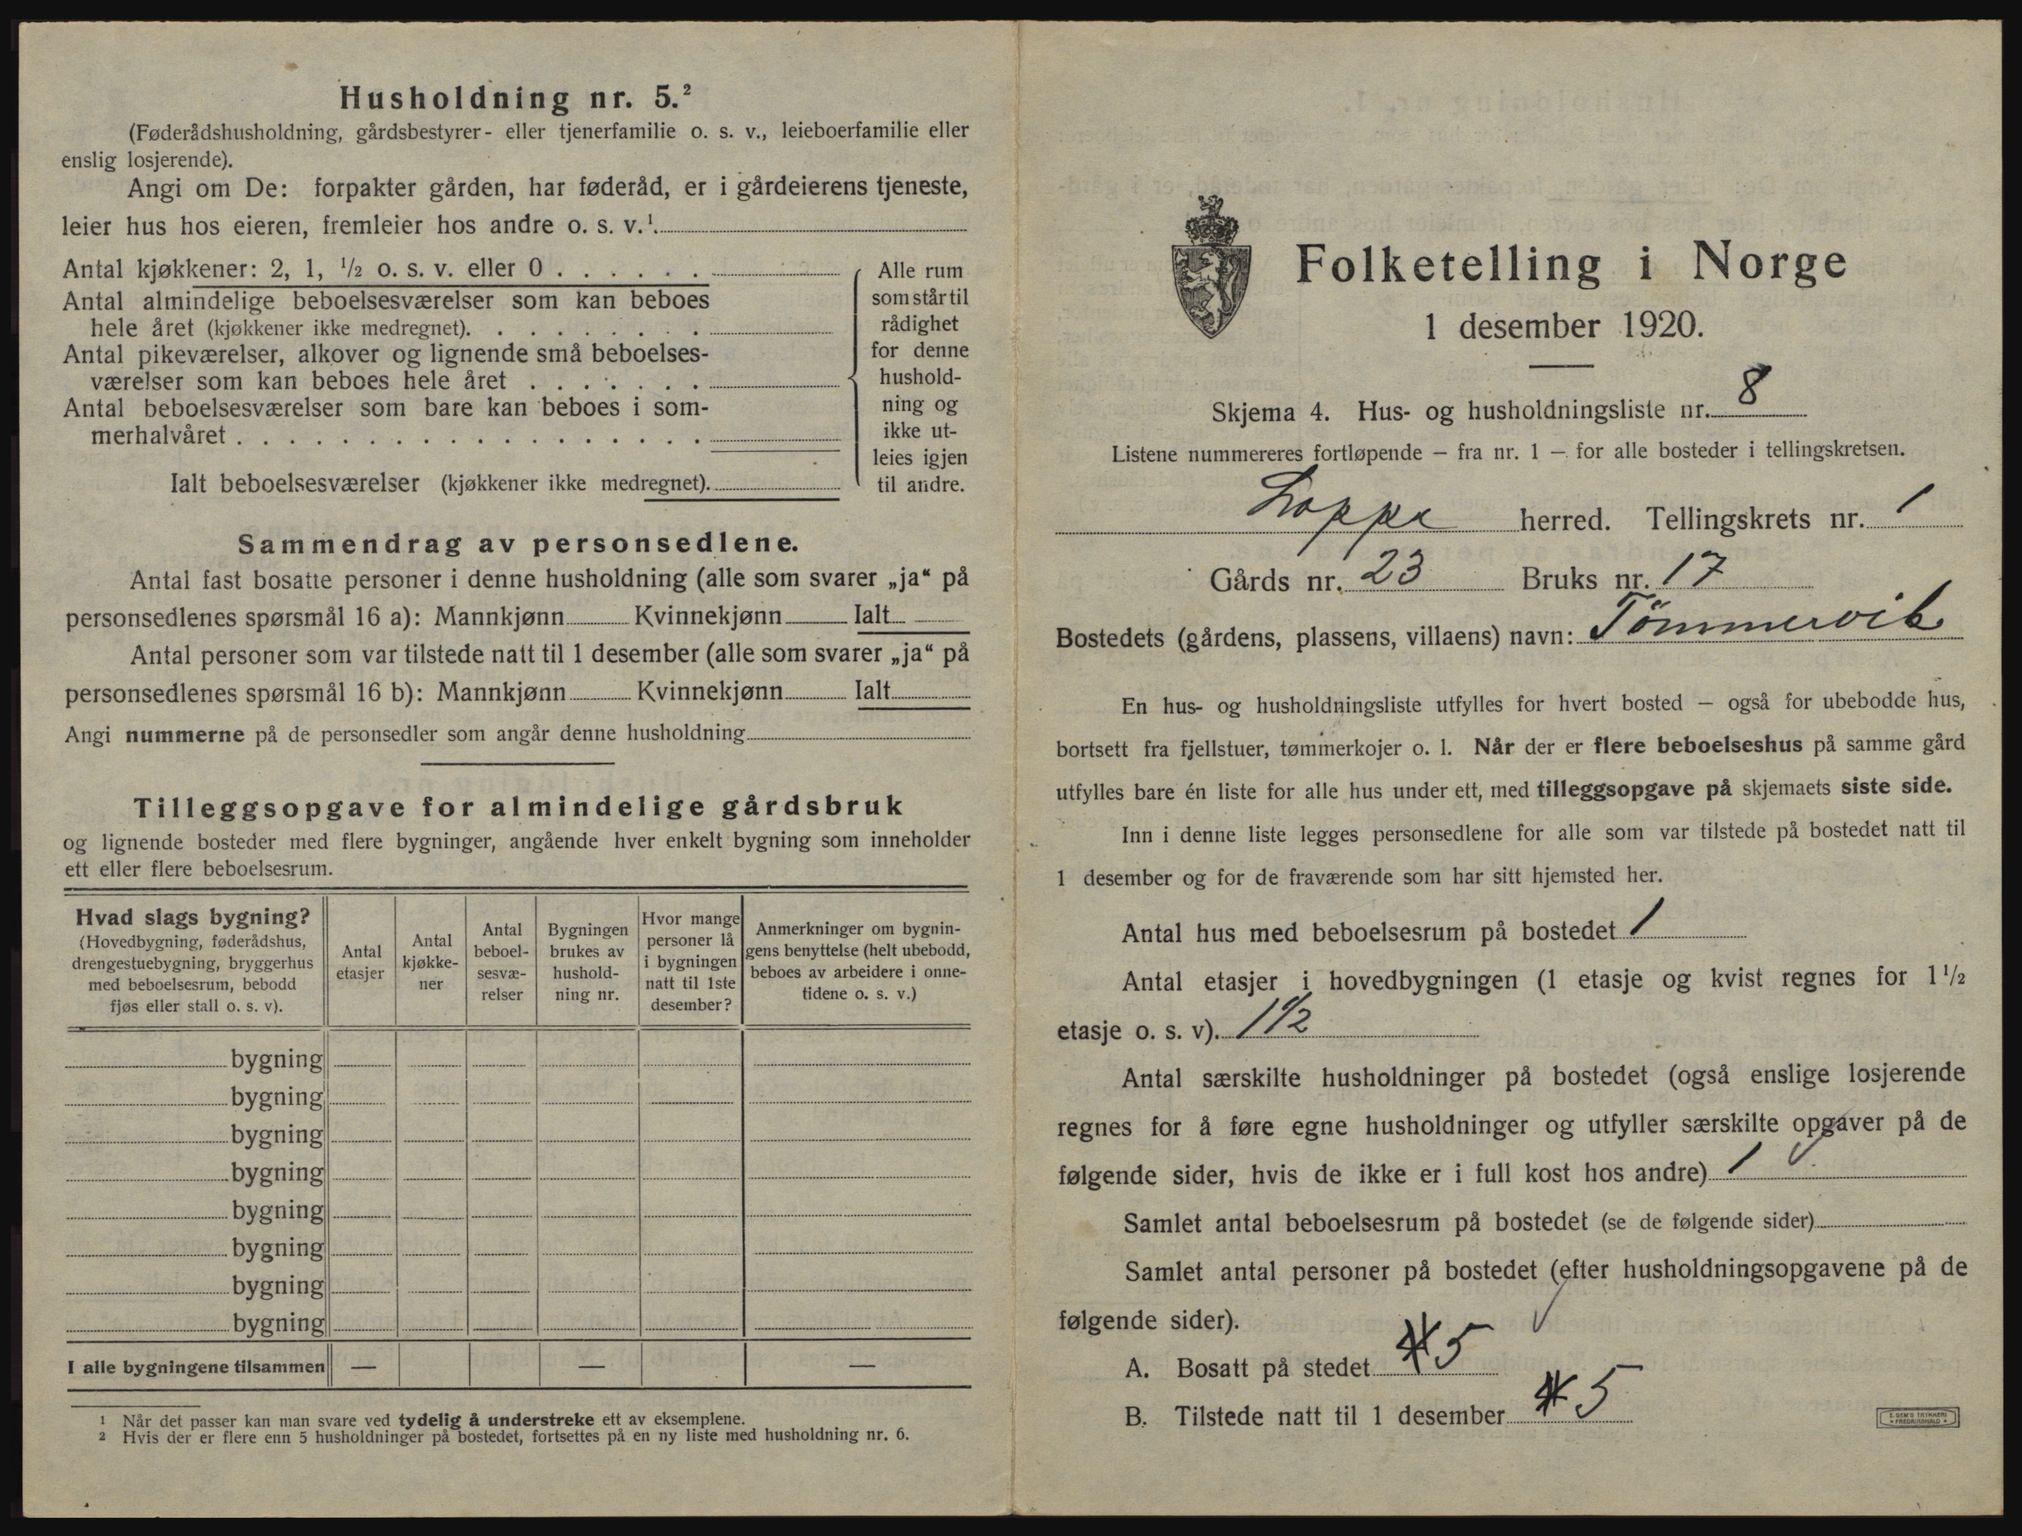 Husholdning nr. 5.²
(Føderådshusholdning, gårdsbestyrer- eller tjenerfamilie o. s. v., leieboerfamilie eller
enslig losjerende).
Angi om De: forpakter gården, har føderåd, er i gårdeierens tjeneste,
leier hus hos eieren, fremleier hos andre o. s. v.¹
Antal kjøkkener: 2, 1, ½ o. s. v. eller 0 . . . . . .
Antal almindelige beboelsesværelser som kan beboes
hele året (kjøkkener ikke medregnet). . . . . . . . .
Antal pikeværelser, alkover og lignende små beboelses-
værelser som kan beboes hele året . . . . . . .
Antal beboelsesværelser som bare kan beboes i som-
merhalvåret . . . . . . . . . . . . . . . . . .
Ialt beboelsesværelser (kjøkkener ikke medregnet).
Alle rum
som står til
rådighet
for denne
hushold-
ning og
ikke ut-
leies igjen
til andre.
Sammendrag av personsedlene.
Antal fast bosatte personer i denne husholdning (alle som svarer „ja“ på
personsedlenes spørsmål 16 a): Mannkjønn Kvinnekjønn Ialt
Antal personer som var tilstede natt til 1 desember (alle som svarer „ja“ på
personsedlenes spørsmål 16 b): Mannkjønn Kvinnekjønn Ialt
Angi nummerne på de personsedler som angår denne husholdning
Tilleggsopgave for almindelige gårdsbruk
og lignende bosteder med flere bygninger, angående hver enkelt bygning som inneholder
ett eller flere beboelsesrum.
Hvad slags bygning?
(Hovedbygning, føderådshus,
drengestuebygning, bryggerhus
med beboelsesrum, bebodd
fjøs eller stall o. s. v).
Antal
etasjer
Antal
kjøkke-
ner
Antal
beboel-
sesvæ-
relser
Bygningen
brukes av
hushold-
ning nr.
Hvor mange
personer lå
i bygningen
natt til 1ste
desember?
Anmerkninger om bygnin-
gens benyttelse (helt ubebodd,
beboes av arbeidere i onne-
tidene o. s. v.)
bygning
bygning
bygning
bygning
bygning
bygning
bygning
bygning
I alle bygningene tilsammen — — —
¹ Når det passer kan man svare ved tydelig å understreke ett av eksemplene.
² Hvis der er flere enn 5 husholdninger på bostedet, fortsettes på en ny liste med husholdning nr. 6.
Folketelling i Norge
1 desember 1920.
Skjema 4. Hus- og husholdningsliste nr. 8
Listene nummereres fortløpende – fra nr. 1 – for alle bosteder i tellingskretsen.
Loppa herred. Tellingskrets nr. 1
Gårds nr. 23 Bruks nr. 17
Bostedets (gårdens, plassens, villaens) navn: Tømmervik
En hus- og husholdningsliste utfylles for hvert bosted – også for ubebodde hus,
bortsett fra fjellstuer, tømmerkojer o. l. Når der er flere beboelseshus på samme gård
utfylles bare én liste for alle hus under ett, med tilleggsopgave på skjemaets siste side.
Inn i denne liste legges personsedlene for alle som var tilstede på bostedet natt til
1 desember og for de fraværende som har sitt hjemsted her.
Antal hus med beboelsesrum på bostedet 1
Antal etasjer i hovedbygningen (1 etasje og kvist regnes for 1½
etasje o. s. v). 1½
Antal særskilte husholdninger på bostedet (også enslige losjerende
regnes for å føre egne husholdninger og utfyller særskilte opgaver på de
følgende sider, hvis de ikke er i full kost hos andre) 1
Samlet antal beboelsesrum på bostedet (se de følgende sider)
Samlet antal personer på bostedet (efter husholdningsopgavene på de
følgende sider).
A. Bosatt på stedet 5
B. Tilstede natt til 1 desember 5